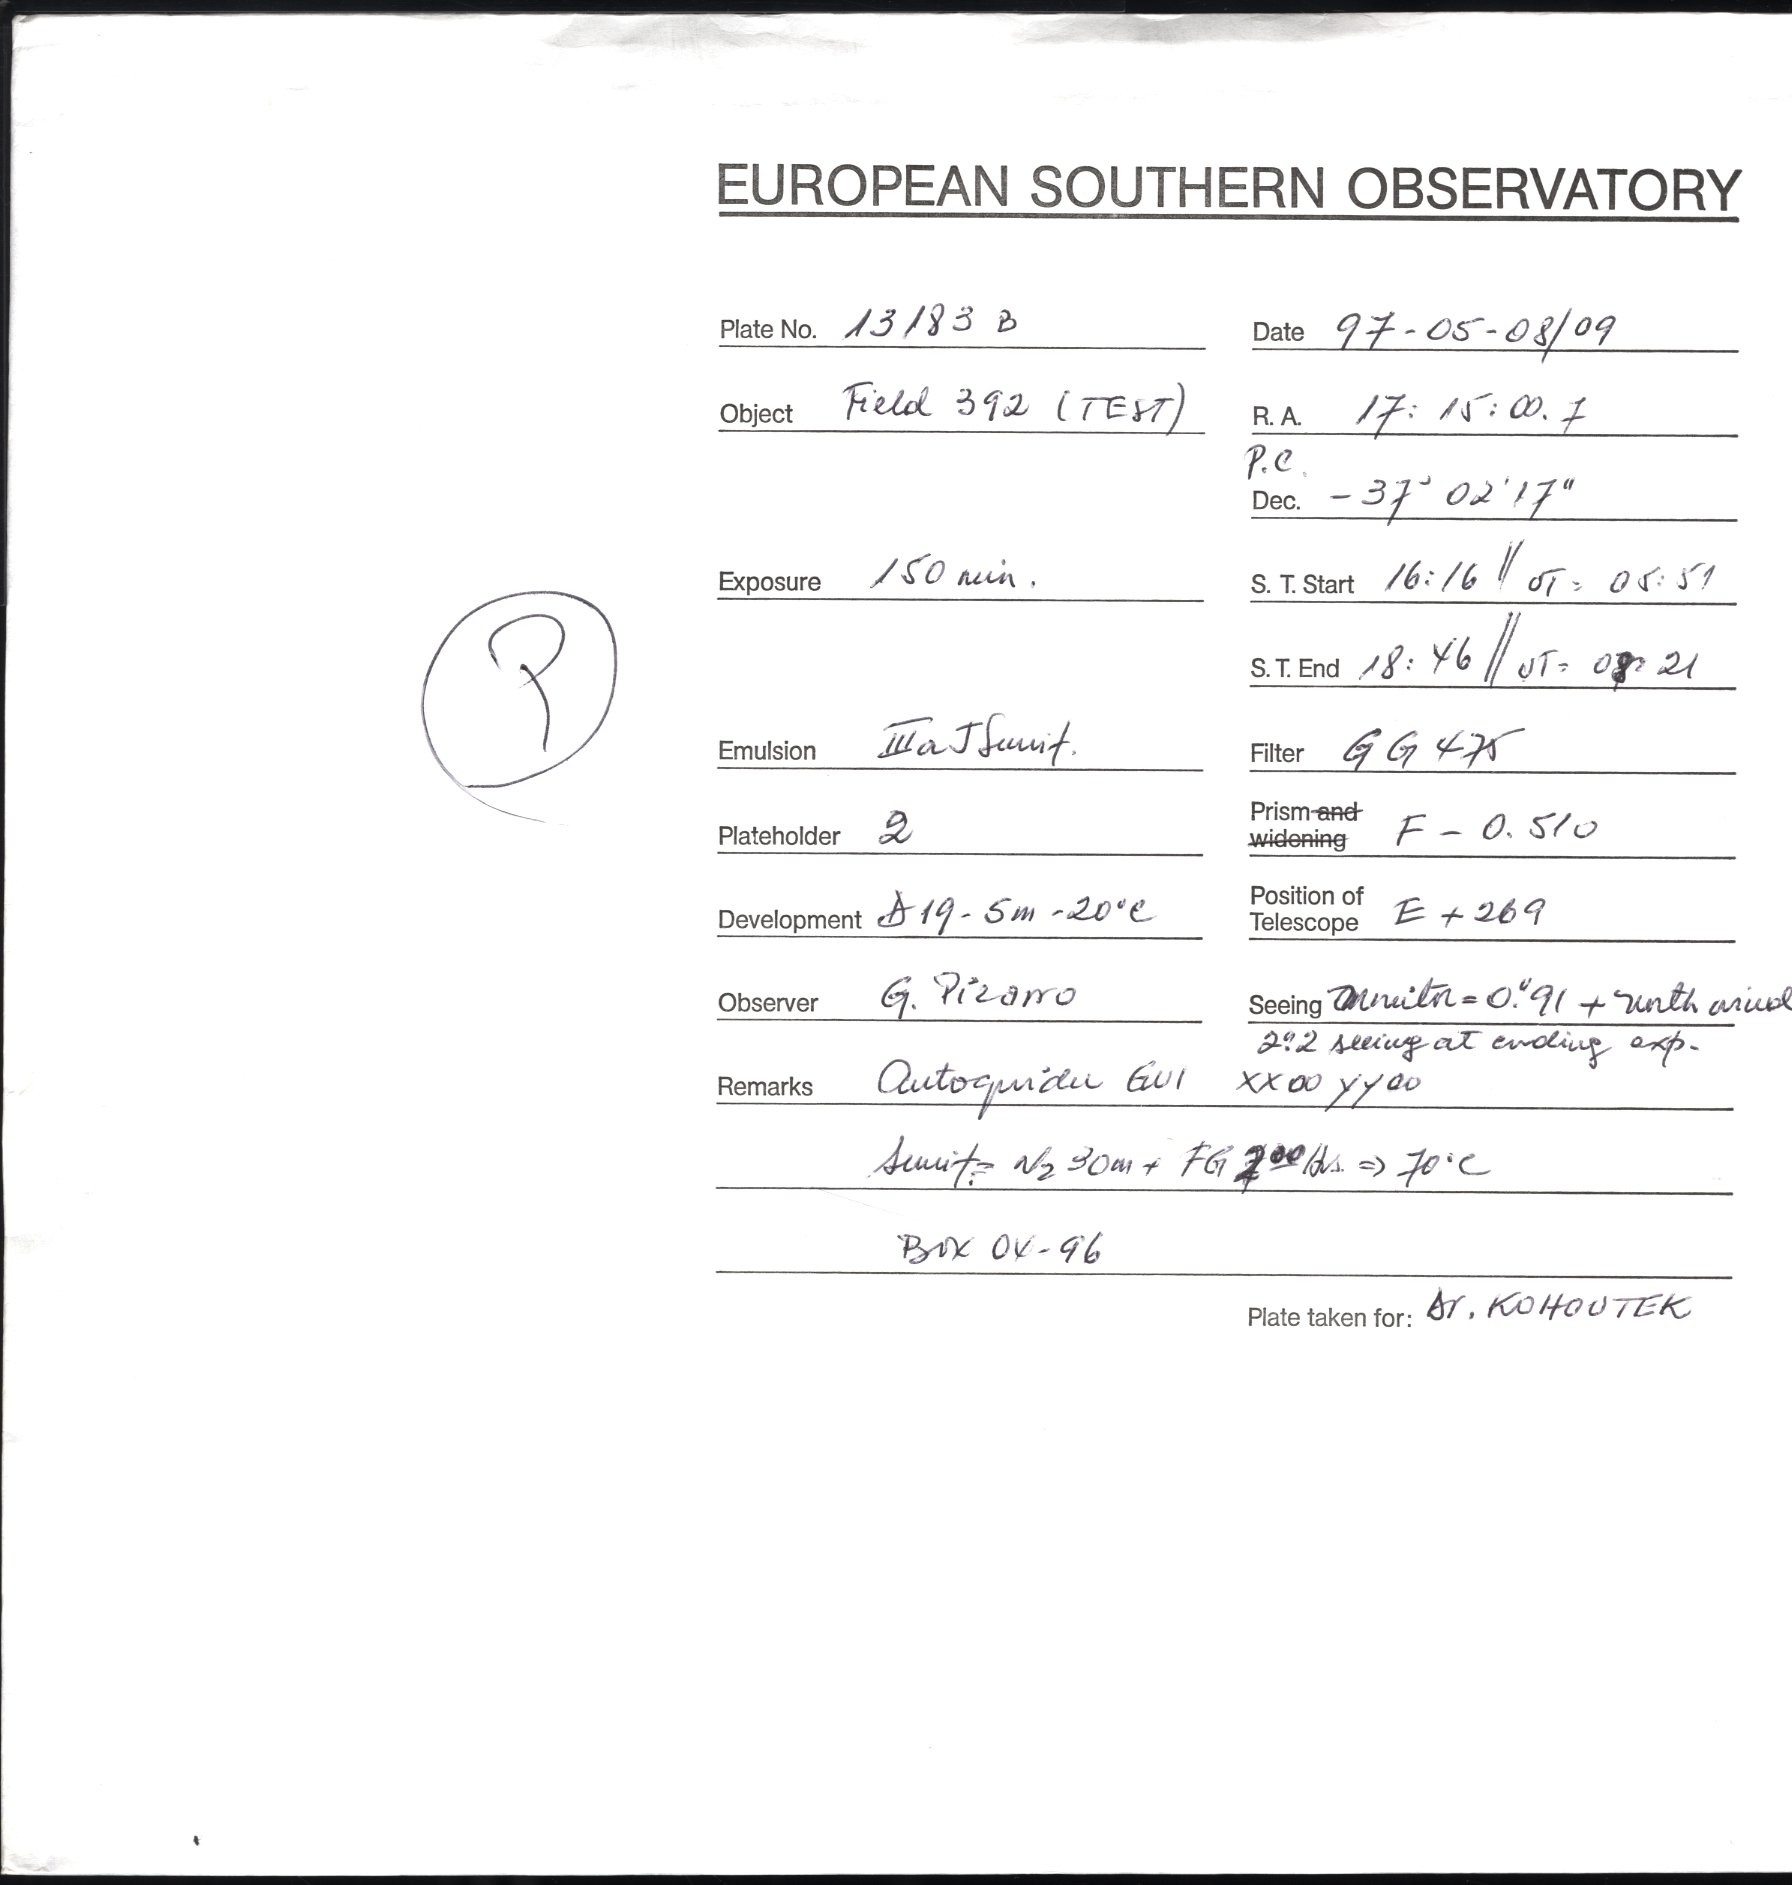 EUROPEAN SOUTHERN OBSERVATORY
Plate No. 13183 B
Date 97-05-08/09
Object Field 392 (TEST)
R. A. 17: 15: 00. 7
P.C.
Dec. - 37° 02' 17"
Exposure 150 min.
S. T. Start 16:16 // UT= 05:51
S. T. End 18:46 // UT= 08:21
P
Emulsion IIIaJ
Filter GG 475
Plateholder 2
Prism and widening F - 0.510
Development D19 - 5m - 20°C
Position of Telescope E + 269
Observer G. Pizarro
Seeing monitor = 0."91 + north wind
2"2 seeing at ending exp.
Remarks Autoguider GUI XX00 YY00
N2 30m + FG 700 Hs. => 70°C
Box 04-96
Plate taken for: Dr. KOHOUTEK